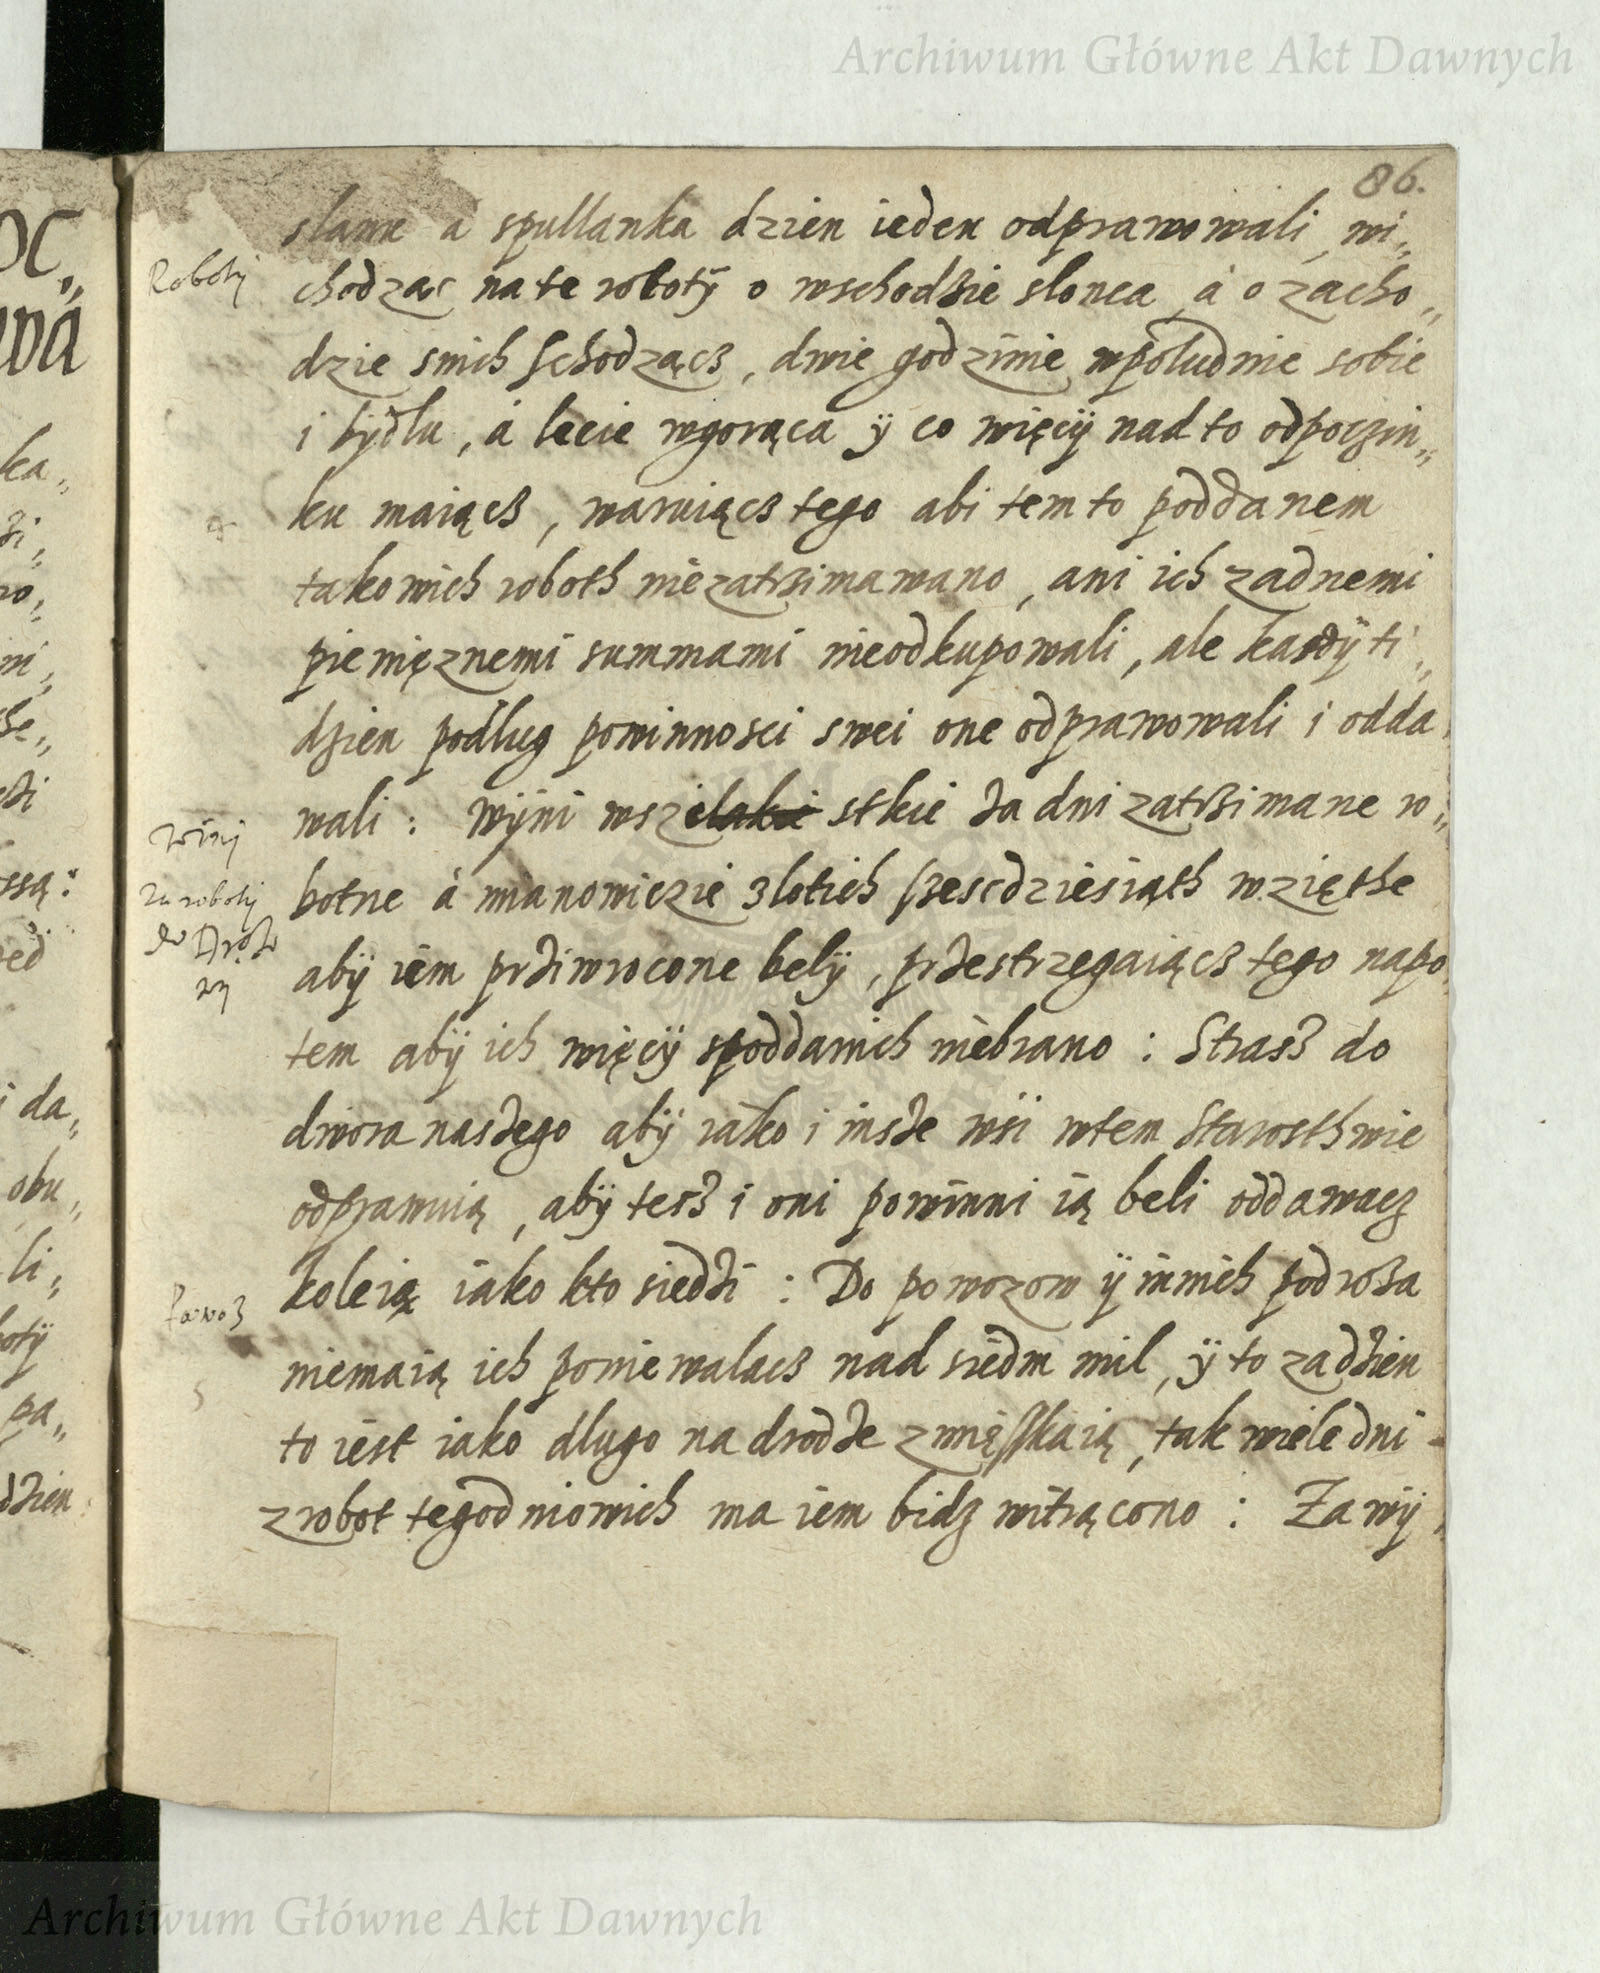 Archiwum Główne Akt Dawnych
86.
slanu a spullanka dzien ieden odprawowali, wi„
Roboty
chodząc na te roboty o wschodzie slonca, á o zacho„
dzie snich schodzącz, dwie godzinie wpoludnie sobie
i bydlu, á lecie wgorąca ÿ co więcÿ nad to odpoczin„
ku maiącz, waruiącz tego abi tem to poddanem
takowich roboth niezatrzimawano, ani ich zadnemi
pienięznemi summami nieodkupowali, ale kasdÿ ti„
dzien podlug powinnosci swei one odprawowali i odda„
wali : Wÿni wszelakie stkie za dni zatrzimane ro„
Winy
botne á mianowiczie zlotich szescdziesiąth wzięthe
za roboty
do Dwo
abÿ iem prziwrocone belÿ, przestrzegaiącz tego napo„
tem abÿ ich więcÿ spoddanich niebrano : Strasz do
dwora naszego abÿ iako i insze wsi wtem Starosthwie
odprawuią, abÿ tesz i oni powinni ią beli oddawacz
koleią iako kto siedzi : Do powozow ÿ innich podroza
Powoz
niemaią ich poniewalacz nad siedm mil, ÿ to za dzien
to iest iako dlugo na drodze zmięszkaią, tak wiele dni
z robot tegodniowich ma iem bidz witrącono : Za wÿ„
Archiwum Główne Akt Dawnych